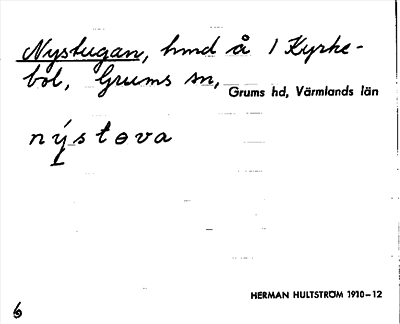 Nystugan, hmd å 1 Kyrke-
bol, Grums sn,
Grums hd, Värmlands län
nýstɵva
HERMAN HULTSTRÖM 1910–12
6